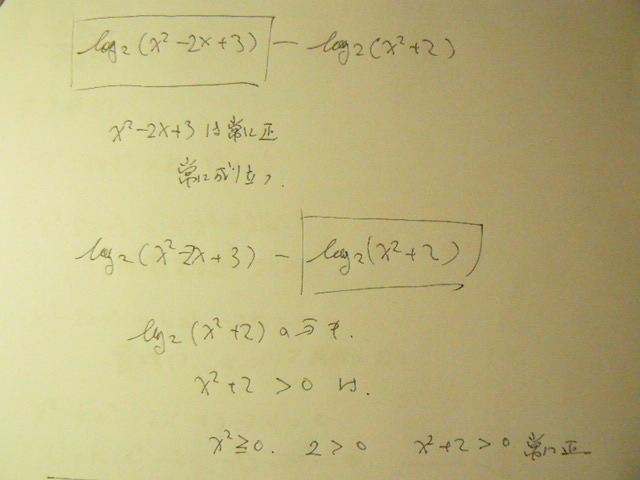 log₂(x²-2x+3) - log₂(x²+2)
x²-2x+3 は常に正
常に成り立つ.
log₂(x²-2x+3) - log₂(x²+2)
log₂(x²+2) の方も.
x²+2 > 0 は.
x²≧0. 2 > 0 x²+2 > 0 常に正